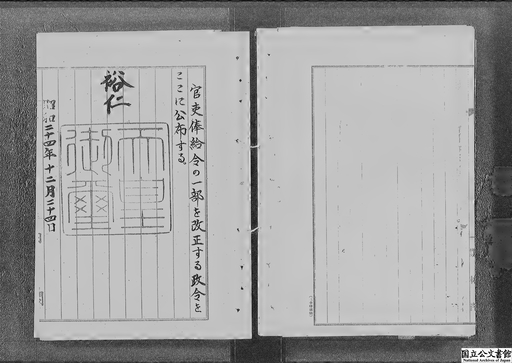 官吏俸給令の一部を改正する政令を
ここに公布する
裕仁
天皇御璽
昭和二十四年十二月二十四日
国立公文書館
National Archives of Japan